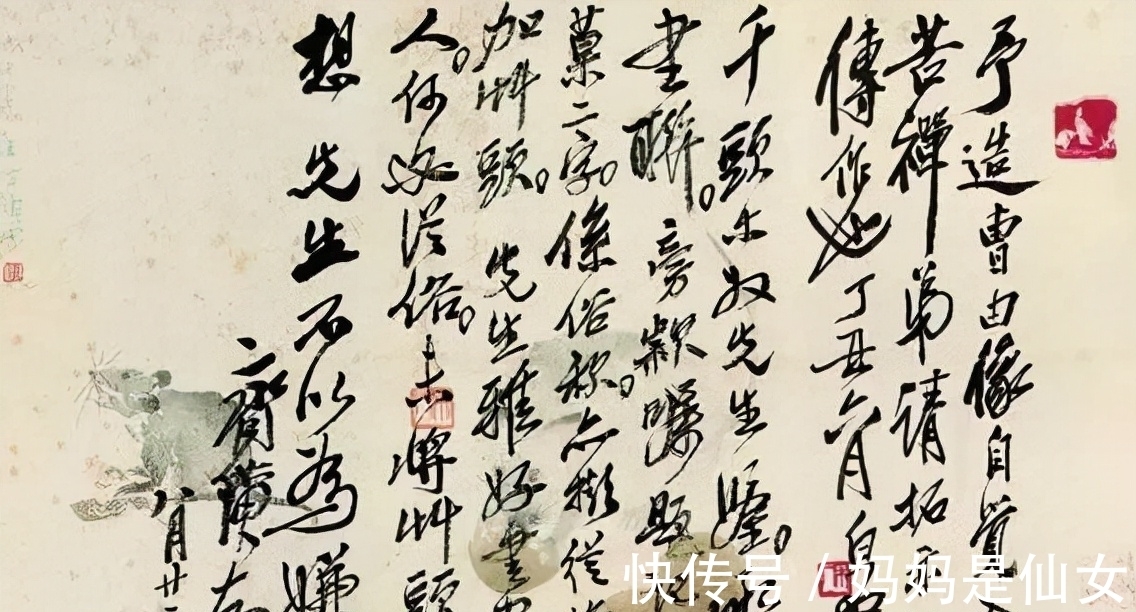 予造曹由像自覺
苦禪弟請拓
傳作也丁丑六月白
千頭木奴先生鑒
書聯。旁款囑題
菓二字。係俗称。亦擬從
加艸頭。先生雅好書
人。何必從俗。未將艸頭
想先生不以為嫌
齊璜
八月廿
快传号/妈妈是仙女